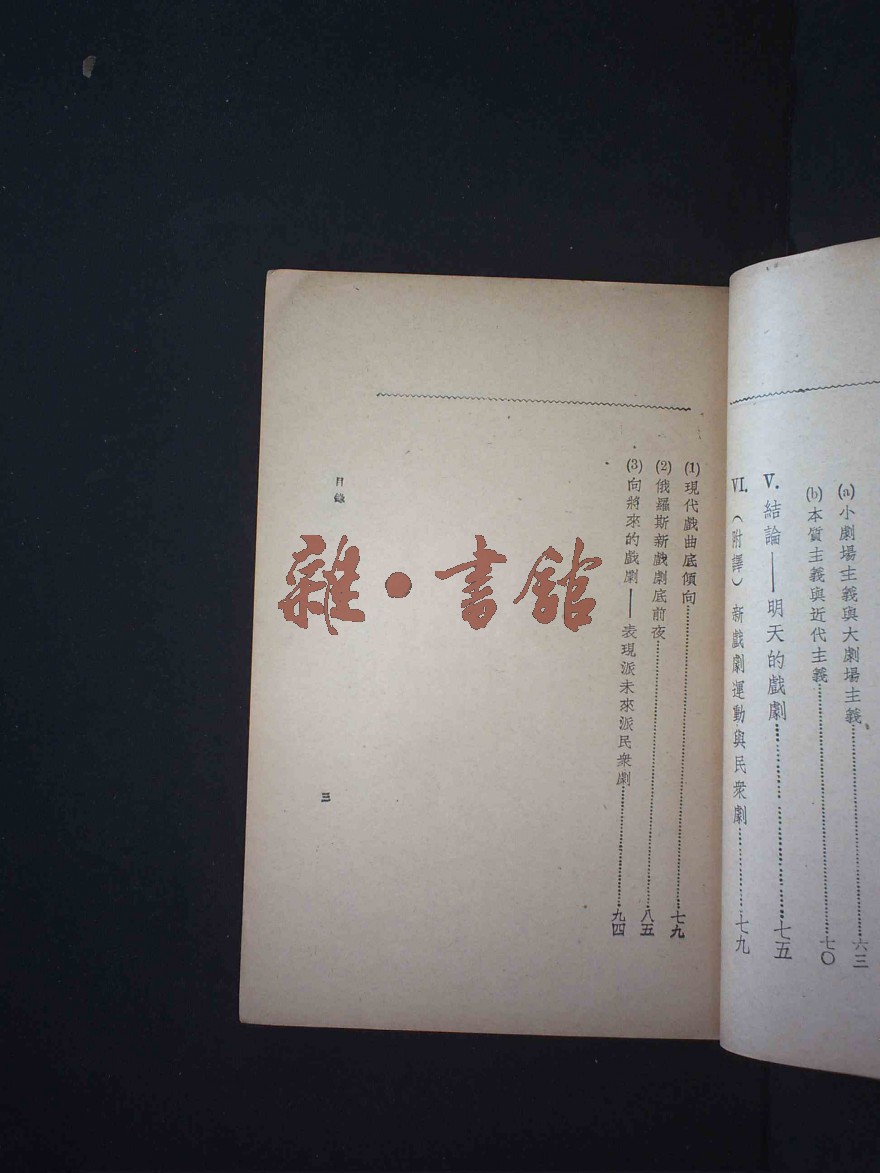 (a)小劇場主義與大劇場主義……六三
(b)本質主義與近代主義……七〇
V. 結論——明天的戲劇……七五
VI. (附譯)新戲劇運動與民衆劇……七九
(1)現代戲曲底傾向……七九
(2)俄羅斯新戲劇底前夜……八五
(3)向將來的戲劇——表現派未來派民衆劇……九四
目錄
三
雜·書館